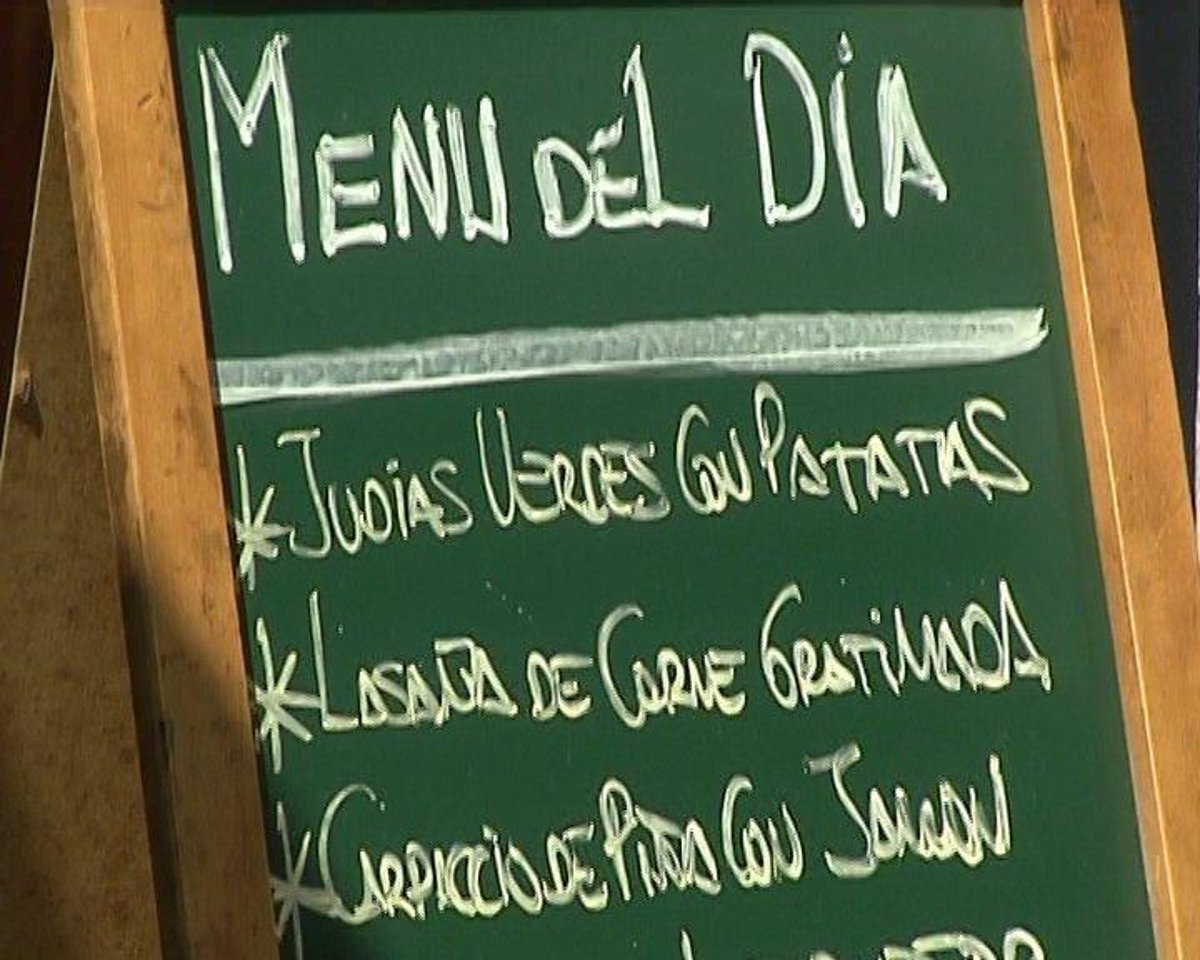 MENU DEL DÍA
* JUDÍAS VERDES CON PATATAS
* LASAÑA DE CARNE GRATINADA
* CARPACCIO DE PIÑA CON JAMON